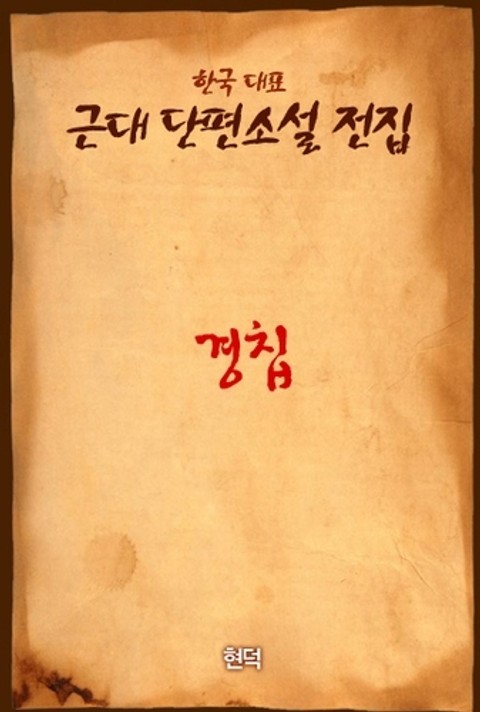 한국 대표
근대 단편소설 전집
경칩
현덕